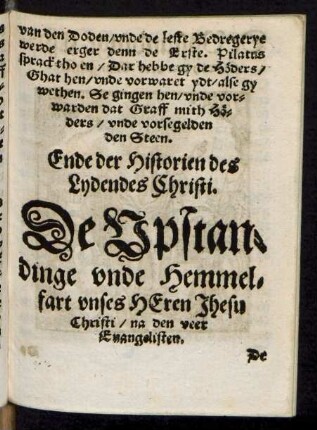 van den Doden/vnde de leste Bedregerye
werde erger denn de Erste. Pilatus
sprack tho en / Dar hebbe gy de Höders/
Ghat hen/vnde vorwaret ydt/alse gy
wethen. Se gingen hen/vnde vor-
warden dat Graff mith Hö-
ders / vnde vorsegelden
den Steen.
Ende der Historien des
Lydendes Christi.
De Vpstan-
dinge vnde Hemmel-
fart vnses HEren Jhesu
Christi / na den veer
Euangelisten.
De